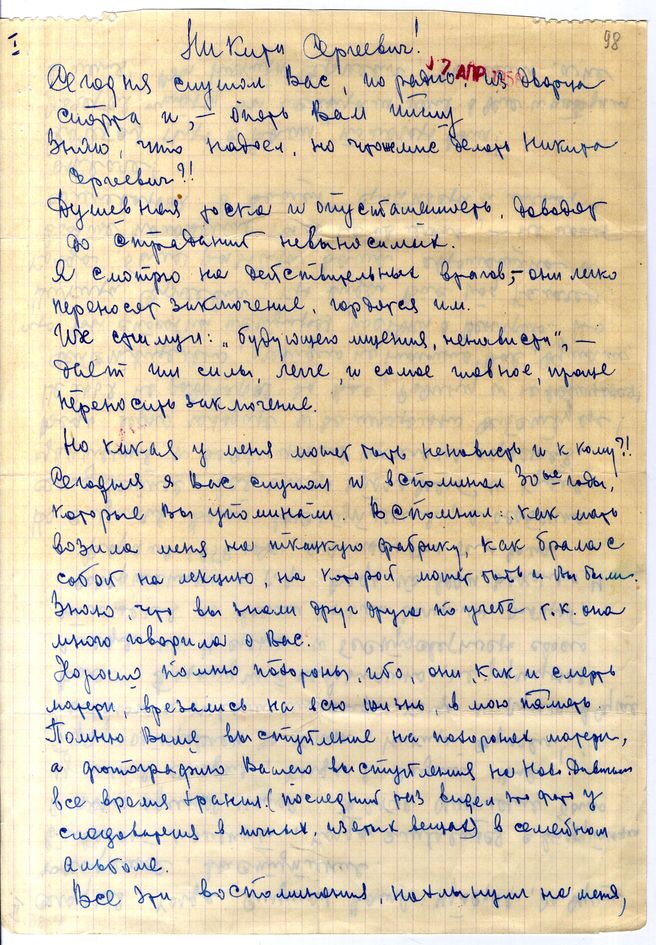 I
98
Никита Сергеевич!
17 АПР 1958
Сегодня слушал Вас, по радио, из дворца
спорта и, – опять Вам пишу
Знаю, что надоел, но что мне делать Никита
Сергеевич?!
Душевная тоска и опусташенность, доводят
до страданий невыносимых.
Я смотрю на действительных врагов, – они легко
переносят заключение, гордятся им.
Их стимул: „будующего мщения, ненависти", –
дает им силы, легче, и самое главное, проще
переносить заключение.
Но какая у меня может быть ненависть и к кому?!
Сегодня я Вас слушал и вспоминал 30ые годы,
которые Вы упоминали. Вспомнил: как мать
возила меня на ткацкую фабрику, как брала с
собой на лекцию, на которой может быть и Вы были.
Знаю, что вы знали друг друга по учебе т.к. она
много говорила о Вас.
Хорошо помню похороны, ибо, они как и смерть
матери, врезались на всю жизнь, в мою память.
Помню Ваше выступление на похоронах матери,
а фотографию Вашего выступления на Ново-Девичьем
все время хранил (последний раз видел это фото у
следователя в личных, изъятых вещах) в семейном
альбоме.
Все эти воспоминания, нахлынули на меня,